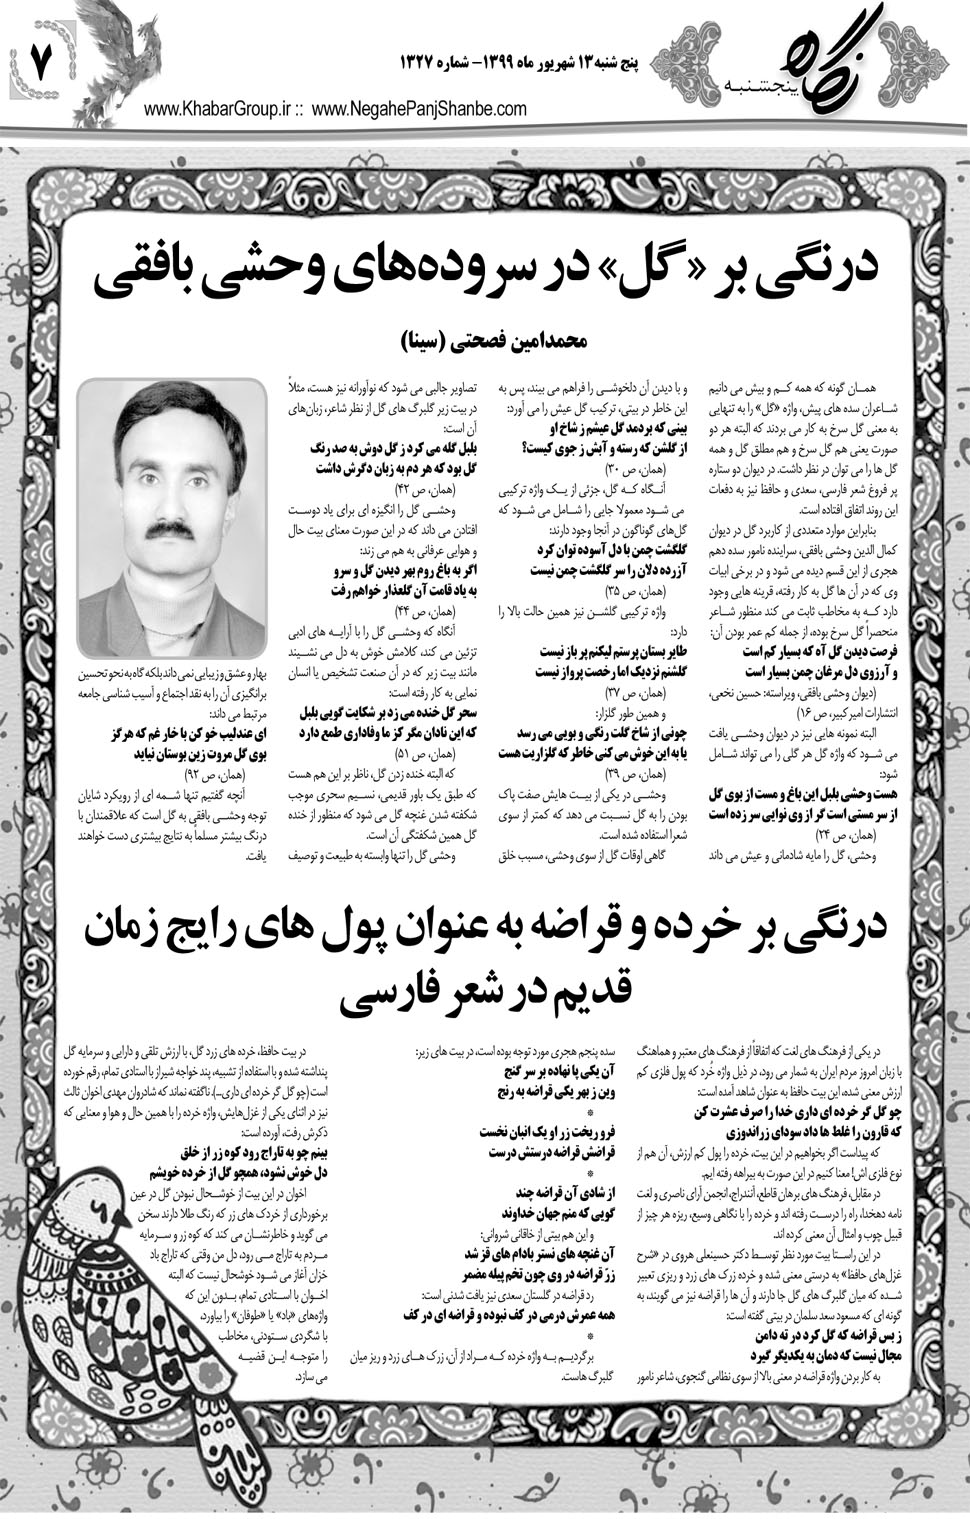 ۷
پنج شنبه ۱۳ شهریور ماه ۱۳۹۹- شماره ۱۳۲۷
نگاه
پنجشنبه
www.KhabarGroup.ir :: www.NegahePanjShanbe.com
درنگی بر «گل» در سروده‌های وحشی بافقی
محمدامین فصحتی (سینا)
همان گونه که همه کم و بیش می دانیم
شاعران سده های پیش، واژه «گل» را به تنهایی
به معنی گل سرخ به کار می بردند که البته هر دو
صورت یعنی هم گل سرخ و هم مطلق گل و همه
گل ها را می توان در نظر داشت. در دیوان دو ستاره
پر فروغ شعر فارسی، سعدی و حافظ نیز به دفعات
این روند اتفاق افتاده است.
بنابراین موارد متعددی از کاربرد گل در دیوان
کمال الدین وحشی بافقی، سراینده نامور سده دهم
هجری از این قسم دیده می شود و در برخی ابیات
وی که در آن ها گل به کار رفته، قرینه هایی وجود
دارد کـه به مخاطب ثابت می کند منظور شاعر
منحصراً گل سرخ بوده، از جمله کم عمر بودن آن:
فرصت دیدن گل آه که بسیار کم است
و آرزوی دل مرغان چمن بسیار است
(دیوان وحشی بافقی، ویراسته: حسین نخعی،
انتشارات امیر کبیر، ص ۱۶)
البته نمونه هایی نیز در دیوان وحشـی یافت
می شـود که واژه گل هر گلی را می تواند شـامل
شود:
هست وحشی بلبل این باغ و مست از بوی گل
از سر مستی است گر از وی نوایی سر زده است
(همان، ص ۲۴)
وحشی، گل را مایه شادمانی و عیش می داند
و با دیدن آن دلخوشـی را فراهم می بیند، پس به
این خاطر در بیتی، ترکیب گل عیش را می آورد:
بینی که بردمد گل عیشم ز شاخ او
از گلشن که رسته و آبش ز جوی کیست؟
(همان، ص ۳۰)
آنـگاه کـه گل، جزئی از یـک واژه ترکیبی
می شـود معمولا جایی را شـامل می شـود که
گل‌های گوناگون در آنجا وجود دارند:
گلگشت چمن با دل آسوده توان کرد
آزرده دلان را سر گلگشت چمن نیست
(همان، ص ۳۵)
واژه ترکیبی گلشـن نیز همین حالت بالا را
دارد:
طایر بستان پرستم لیکنم پر باز نیست
گلشنم نزدیک اما رخصت پرواز نیست
(همان، ص ۳۷)
و همین طور گلزار:
چونی از شاخ گلت رنگی و بویی می رسد
یا به این خوش می کنی خاطر که گلزاریت هست
(همان، ص ۳۹)
وحشـی در یکی از بیـت هایش صفت پاک
بودن را به گل نسـبت می دهد که کمتر از سوی
شعرا استفاده شده است.
گاهی اوقات گل از سوی وحشی، مسبب خلق
تصاویر جالبی می شود که نوآورانه نیز هست، مثلاً
در بیت زیر گلبرگ های گل از نظر شاعر، زبان‌های
آن است:
بلبل گله می کرد ز گل دوش به صد رنگ
گل بود که هر دم به زبان دگرش داشت
(همان، ص ۴۲)
وحشـی گل را انگیزه ای برای یاد دوسـت
افتادن می داند که در این صورت معنای بیت حال
و هوایی عرفانی به هم می زند:
اگر به باغ روم بهر دیدن گل و سرو
به یاد قامت آن گلعذار خواهم رفت
(همان، ص ۴۴)
آنگاه که وحشـی گل را با آرایـه های ادبی
تزئین می کند، کلامش خوش به دل می نشـیند
مانند بیت زیر که در آن صنعت تشخیص یا انسان
نمایی به کار رفته است:
سحر گل خنده می زد بر شکایت گویی بلبل
که این نادان مگر کز ما وفاداری طمع دارد
(همان، ص ۵۱)
که البته خنده زدن گل، ناظر بر این هم هست
که طبق یک باور قدیمی، نسـیم سحری موجب
شکفته شدن غنچه گل می شود که منظور از خنده
گل همین شکفتگی آن است.
وحشی گل را تنها وابسته به طبیعت و توصیف
بهار و عشق و زیبایی نمی داند بلکه گاه به نحو تحسین
برانگیزی آن را به نقد اجتماع و آسیب شناسی جامعه
مرتبط می داند:
ای عندلیب خو کن با خار غم که هرگز
بوی گل مروت زین بوستان نیاید
(همان، ص ۹۲)
آنچه گفتیم تنها شمه ای از رویکرد شایان
توجه وحشی بافقی به گل است که علاقمندان با
درنگ بیشتر مسلماً به نتایج بیشتری دست خواهند
یافت.
درنگی بر خرده و قراضه به عنوان پول های رایج زمان
قدیم در شعر فارسی
در یکی از فرهنگ های لغت که اتفاقاً از فرهنگ های معتبر و هماهنگ
با زبان امروز مردم ایران به شمار می رود، در ذیل واژه خُرد که پول فلزی کم
ارزش معنی شده، این بیت حافظ به عنوان شاهد آمده است:
چو گل گر خرده ای داری خدا را صرف عشرت کن
که قارون را غلط ها داد سودای زراندوزی
که پیداست اگر بخواهیم در این بیت، خرده را پول کم ارزش، آن هم از
نوع فلزی اش! معنا کنیم در این صورت به بیراهه رفته ایم.
در مقابل، فرهنگ های برهان قاطع، آنندراج، انجمن آرای ناصری و لغت
نامه دهخدا، راه را درست رفته اند و خرده را با نگاهی وسیع، ریزه هر چیز از
قبیل چوب و امثال آن معنی کرده اند.
در این راستا بیت مورد نظر توسط دکتر حسینعلی هروی در «شرح
غزل‌های حافظ» به درستی معنی شده و خرده زرک های زرد و ریزی تعبیر
شده که میان گلبرگ های گل جا دارند و آن ها را قراضه نیز می گویند، به
گونه ای که مسعود سعد سلمان در بیتی گفته است:
ز بس قراضه که گل کرد در ته دامن
مجال نیست که دمان به یکدیگر گیرد
به کار بردن واژه قراضه در معنی بالا از سوی نظامی گنجوی، شاعر نامور
سده پنجم هجری مورد توجه بوده است، در بیت های زیر:
آن یکی پا نهاده بر سر گنج
وین ز بهر یکی قراضه به رنج
*
فرو ریخت زر او یک انبان نخست
قراضش قراضه درستش درست
*
از شادی آن قراضه چند
گویی که منم جهان خداوند
و این هم بیتی از خاقانی شروانی:
آن غنچه های نستر بادام های قز شد
زرّ قراضه در وی چون تخم پیله مضمر
رد قراضه در گلستان سعدی نیز یافت شدنی است:
همه عمرش درمی در کف نبوده و قراضه ای در کف
*
برگردیـم بـه واژه خرده کـه مـراد از آن، زرک هـای زرد و ریـز میان
گلبرگ هاست.
در بیت حافظ، خرده های زرد گل، با ارزش تلقی و دارایی و سرمایه گل
پنداشته شده و با استفاده از تشبیه، پند خواجه شیراز با استادی تمام، رقم خورده
است (چو گل گر خرده ای داری...). ناگفته نماند که شادروان مهدی اخوان ثالث
نیز در اثنای یکی از غزل‌هایش، واژه خرده را با همین حال و هوا و معنایی که
ذکرش رفت، آورده است:
بینم چو به تاراج رود کوه زر از خلق
دل خوش نشود، همچو گل از خرده خویشم
اخوان در این بیت از خوشـحال نبودن گل در عین
برخورداری از خردک های زر که رنگ طلا دارند سخن
می گوید و خاطرنشان می کند که کوه زر و سـرمایه
مـردم به تاراج مـی رود، دل من وقتی که تاراج باد
خزان آغاز می شـود خوشحال نیست که البته
اخـوان با اسـتادی تمام، بـدون این که
واژه‌های «باد» یا «طوفان» را بیاورد،
با شـگردی سـتودنی، مخاطب
را متوجـه ایـن قضیـه
می سازد.